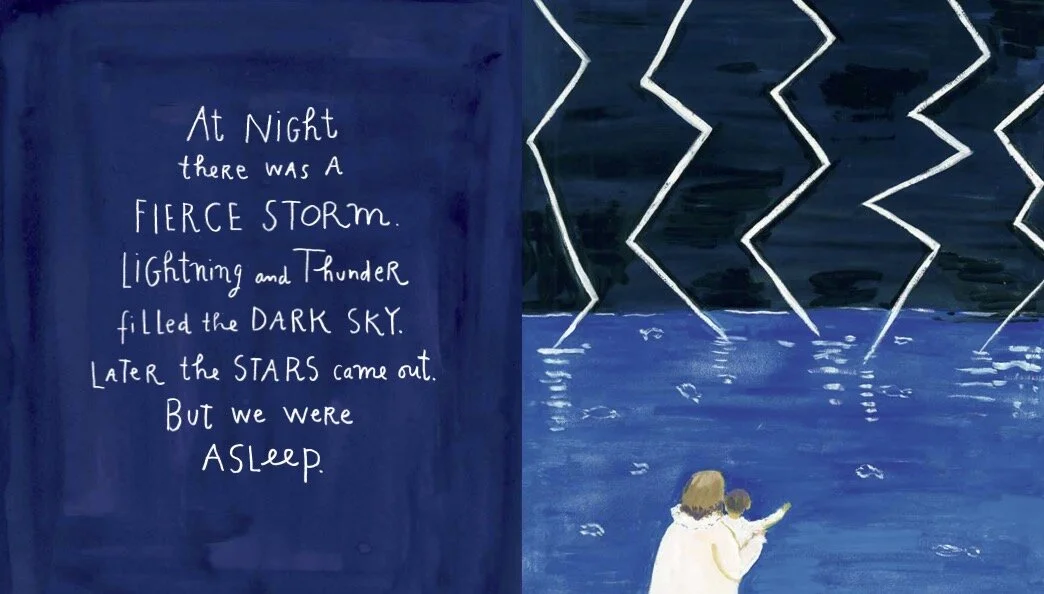 At Night
there was A
FIERCE STORM.
LiGhtning and Thunder
filled the DARK SKY.
LATER the STARS came out.
But we were
ASLeep.